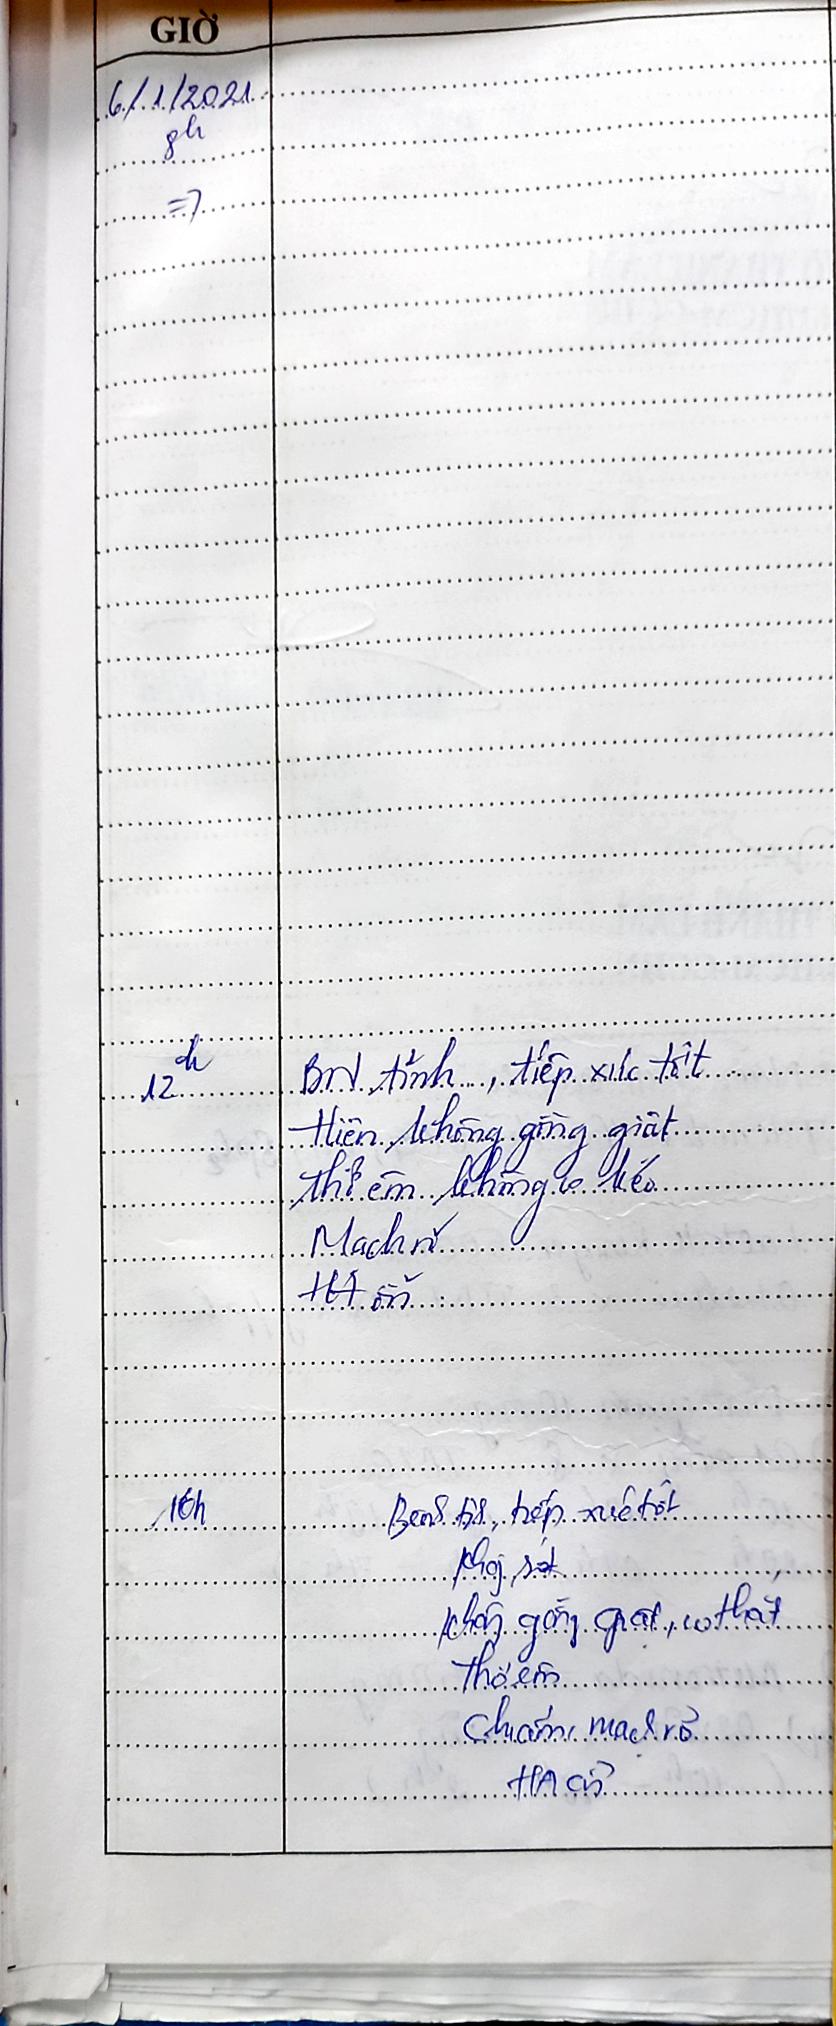 GIỜ
6/1/2021
8h
=>
12h
BN tỉnh, tiếp xúc tốt
Hiện không gồng giật
thở êm không co kéo
Mạch rõ
HA ổn
16h
Bệnh tỉnh, tiếp xúc tốt
không sốt
không gồng giật, co thắt
Thở êm
Chi ấm, mạch rõ
HA ổn